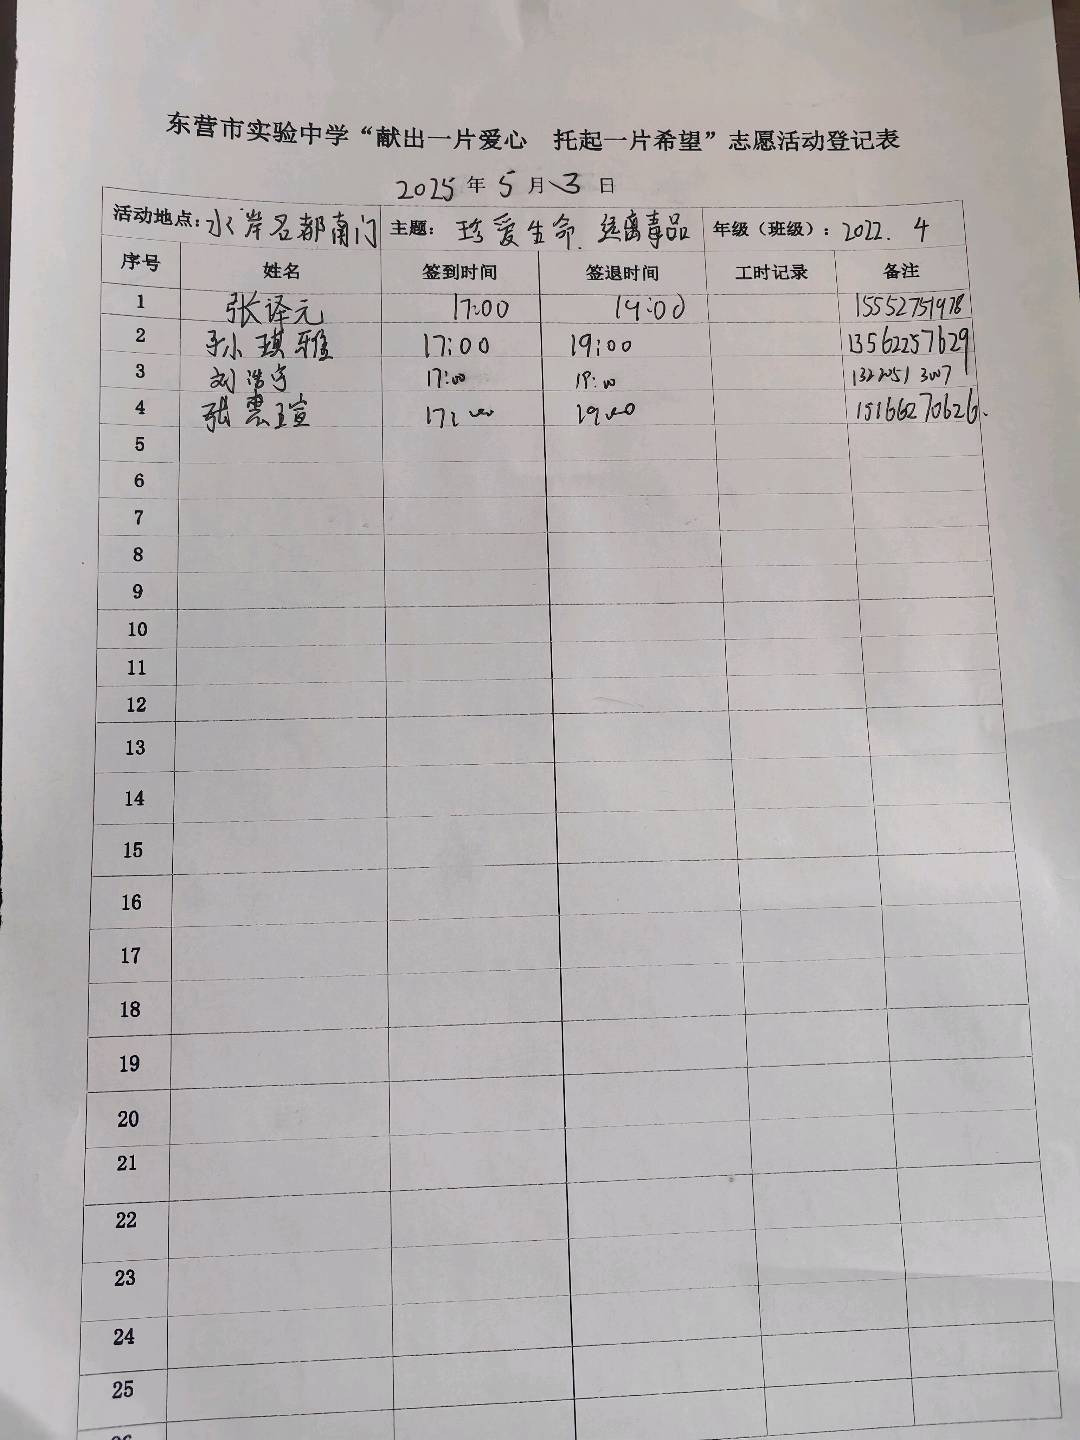 东营市实验中学“献出一片爱心 托起一片希望”志愿活动登记表
2025年5月3日
活动地点：水岸名都南门 主题：珍爱生命.远离毒品 年级（班级）：2022.4
序号 姓名 签到时间 签退时间 工时记录 备注
1 张译元 17:00 19:00 15552751978
2 孙琪雅 17:00 19:00 13562257629
3 刘浩宇 17:00 19:00
4 张 瑄 17:00 19:00 15166270626.
5
6
7
8
9
10
11
12
13
14
15
16
17
18
19
20
21
22
23
24
25
26